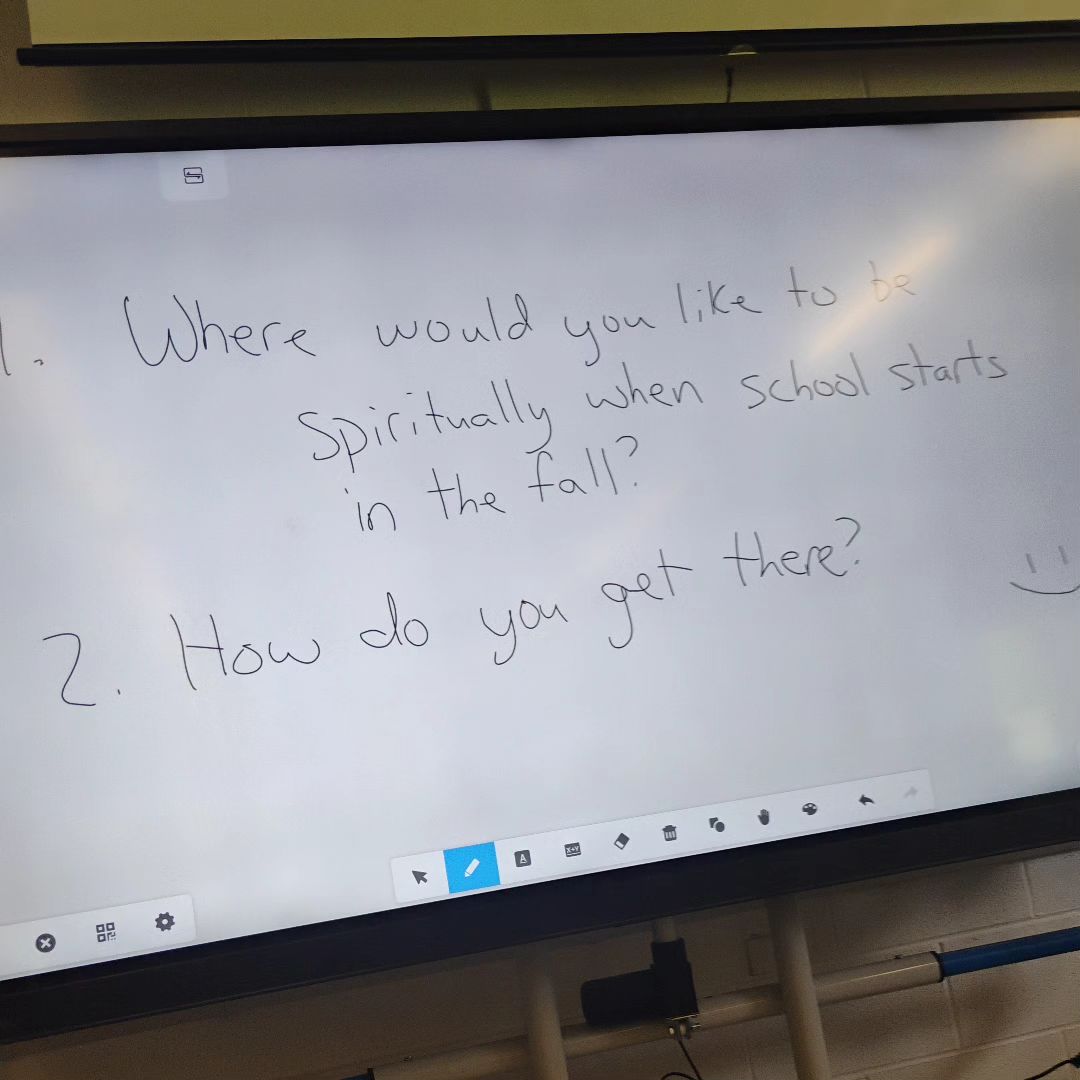 1. Where would you like to be
spiritually when school starts
in the fall?
2. How do you get there?
A
X+Y